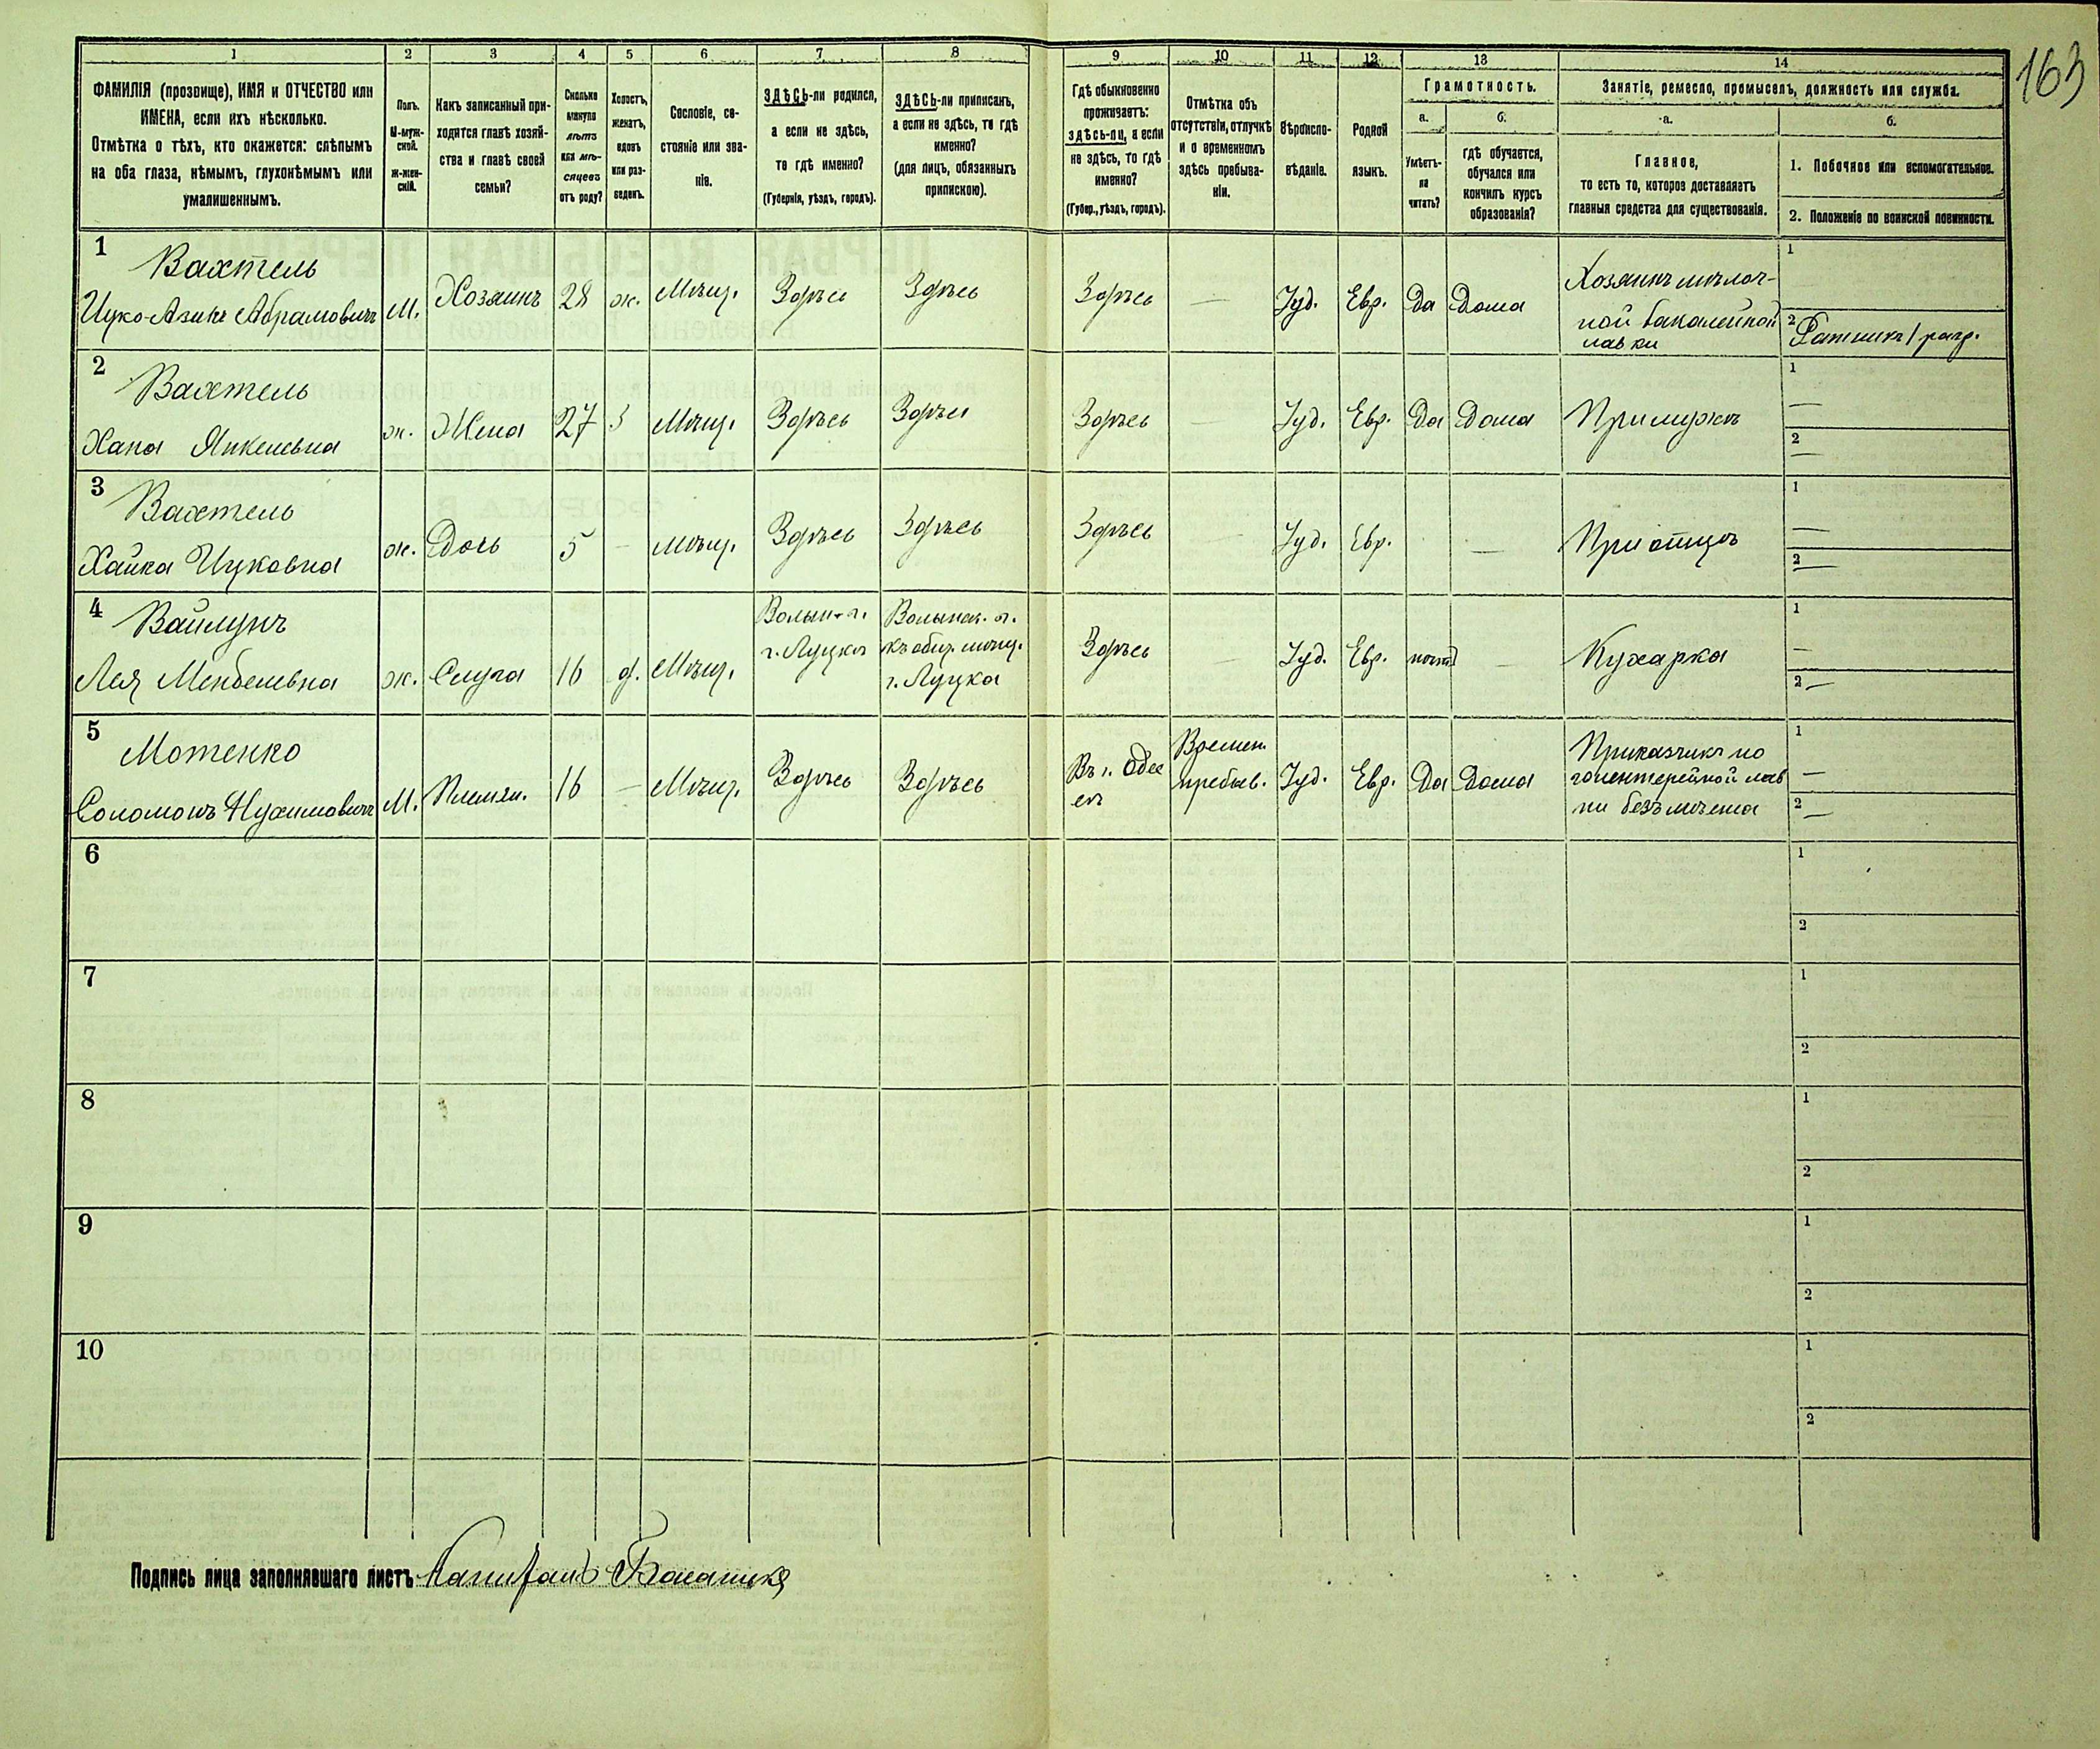 163
1 2 3 4 5 6 7 8 9 10 11 12 13 14
ФАМИЛІЯ (прозвище), ИМЯ и ОТЧЕСТВО или
ИМЕНА, если ихъ нѣсколько.
Отмѣтка о тѣхъ, кто окажется: слѣпымъ
на оба глаза, нѣмымъ, глухонѣмымъ или
умалишеннымъ.
Полъ.
М-муж-
ской.
Ж-жен-
скій.
Какъ записанный при-
ходится главѣ хозяй-
ства и главѣ своей
семьи?
Сколько
минуло
лѣтъ
или мѣ-
сяцевъ
отъ роду?
Холостъ,
женатъ,
вдовъ
или раз-
веденъ.
Сословіе, со-
стояніе или зва-
ніе.
ЗДѢСЬ-ли родился,
а если не здѣсь,
то гдѣ именно?
(Губернія, уѣздъ, городъ).
ЗДѢСЬ-ли приписанъ,
а если не здѣсь, то гдѣ
именно?
(для лицъ, обязанныхъ
припискою).
Гдѣ обыкновенно
проживаетъ:
здѣсь-ли, а если
не здѣсь, то гдѣ
именно?
(Губер., уѣздъ, городъ).
Отмѣтка объ
отсутствіи, отлучкѣ
и о временномъ
здѣсь пребыва-
ніи.
Вѣроиспо-
вѣданіе.
Родной
языкъ.
Грамотность.
а.
Умѣетъ-
ли
читать?
б.
гдѣ обучается,
обучался или
кончилъ курсъ
образованія?
Занятіе, ремесло, промыселъ, должность или служба.
а.
Главное,
то есть то, которое доставляетъ
главныя средства для существованія.
б.
1. Побочное или вспомогательное.
2. Положеніе по воинской повинности.
1
Вахтель
Ицко-Азикъ Абрамовичъ М. Хозяинъ 28 ж. Мѣщ. Здѣсь Здѣсь Здѣсь — Іуд. Евр. Да Дома
Хозяинъ мѣлоч-
ной бакалейной
лавки
1
2 Ратникъ 1 разр.
2
Вахтель
Хана Янкелевна ж. Жена 27 з Мѣщ. Здѣсь Здѣсь Здѣсь — Іуд. Евр. Да Дома При мужѣ
1 —
2 —
3
Вахтель
Хайка Ицковна ж. Дочь 5 — Мѣщ. Здѣсь Здѣсь Здѣсь — Іуд. Евр. — При отцѣ
1 —
2 —
4
Вайлунъ
Лея Менделевна ж. Слуга 16 д. Мѣщ.
Волын. г.
г. Луцкъ
Волынск. г.
къ общ. мѣщ.
г. Луцка
Здѣсь — Іуд. Евр. нѣтъ — Кухарка
1 —
2 —
5
Мотенко
Соломонъ Нухимовичъ М. Племян. 16 — Мѣщ. Здѣсь Здѣсь
Въ г. Одес
съ
Времен.
пребыв.
Іуд. Евр. Да Дома
Приказчикъ по
галентерейной лав
ки безъ мѣста
1 —
2 —
6
1
2
7
1
2
8
1
2
9
1
2
10
1
2
Подпись лица заполнявшаго листъ